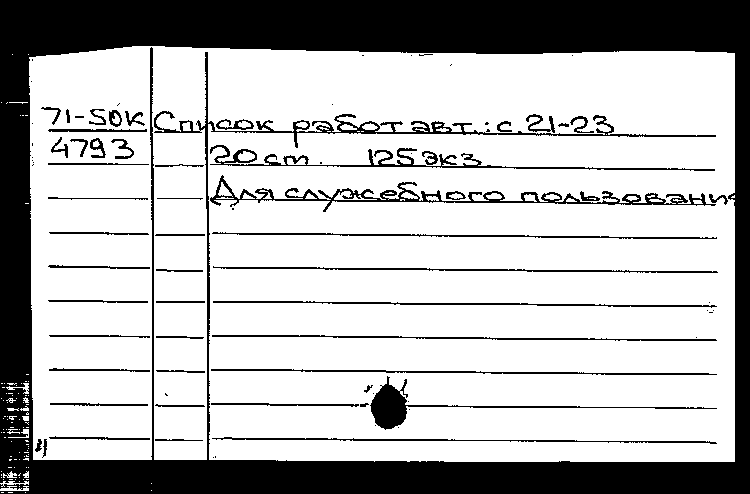 71-50К Список работ авт.: с. 21-23
4793 20 cm 125 экз.
Для служебного пользования